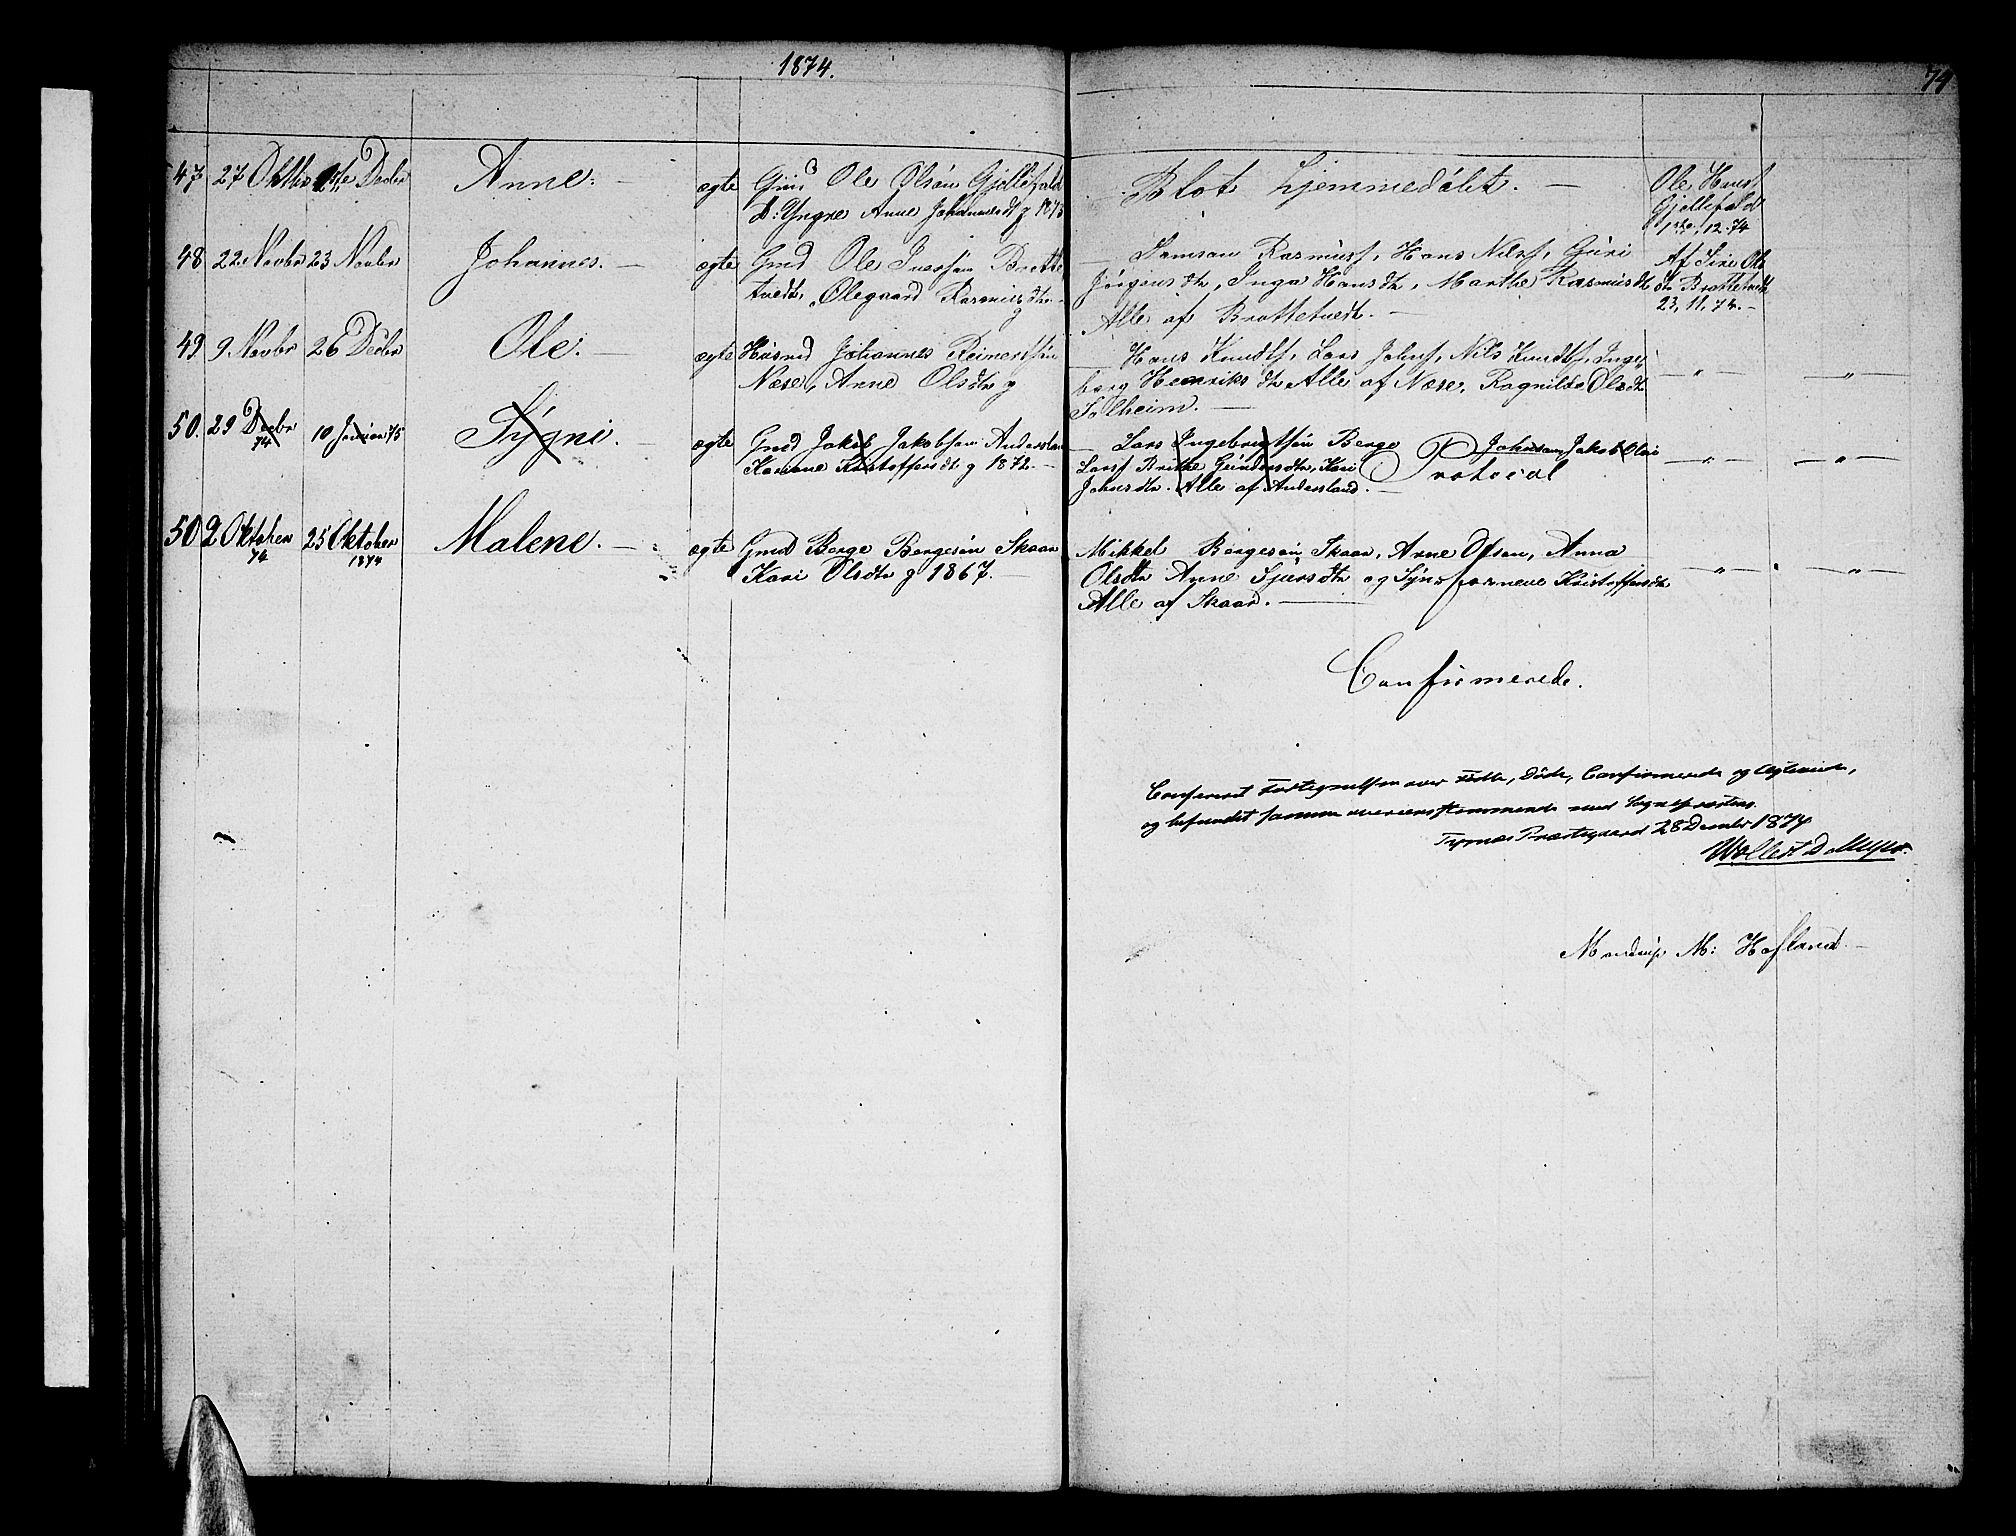 1874.
74
47 27 Oktbr 1ste Decbr Anne. — ægte Gmd Ole Olsøn Gjellefald
D: Yngre Anne Johannesdt g 1873
Blot hjemmedøbt. —
Ole Hansf
Gjellefald
12.74
48 22 Novbr 23 Novbr Johannes. — ægte Gmd Ole Iversøn Brotte
tvedt, Olegaard Rasmusdtr
g
Samson Rasmusf, Hans Nilsf, Guri
Jørgensdtr, Inga Hansdtr, Marthe Rasmusdtr
Alle af Brottetvedt. —
Af Sire Ols
dtr Brottetvedt
23, 11, 74. —
49 9 Novbr 26 Decbr Ole. — ægte Husmd Johannes Reinertsøn
Næse, Anne Olsdtr g
Hans Knudtf, Lars Johnf, Nils Knudtf, Inge
borg Henriksdtr Alle af Næse, Ragnilde Olsdtr
Solheim. —
— " — — " —
50. 29 Decbr 74 10 Januar 75 Sygni. — ægte Gmd Jakob Jakobsøn Andersland
Kristoffersdtr g 1872. —
Lars Ingebrigtsøn Berge Johnsøn, Jakob
Larsf Brithe Gundersdtr, Kari
Johnsdtr. Alle af Andersland. —
Protocol
— " — — " —
50 2 Oktober 74 25 Oktober 1874 Malene. — ægte Gmd Børge Børgesøn Skaar
Kari Olsdtr g 1867. —
Mikkel Børgesøn Skaar, Arne Olsen, Anna
Olsdtr Anne Sjursdtr og Kristoffersdtr
Alle af Skaar. —
— " — — " —
Confirmerede.
Confereret Fortegnelsen over Fødte, Døde, Confirmerede og Ægteviede,
og befundet samme overensstemmende med Sognepræstens
Tysnes Præstegaard 28 Decmbr 1874
Wollert D Meyer.
M: Hofland —